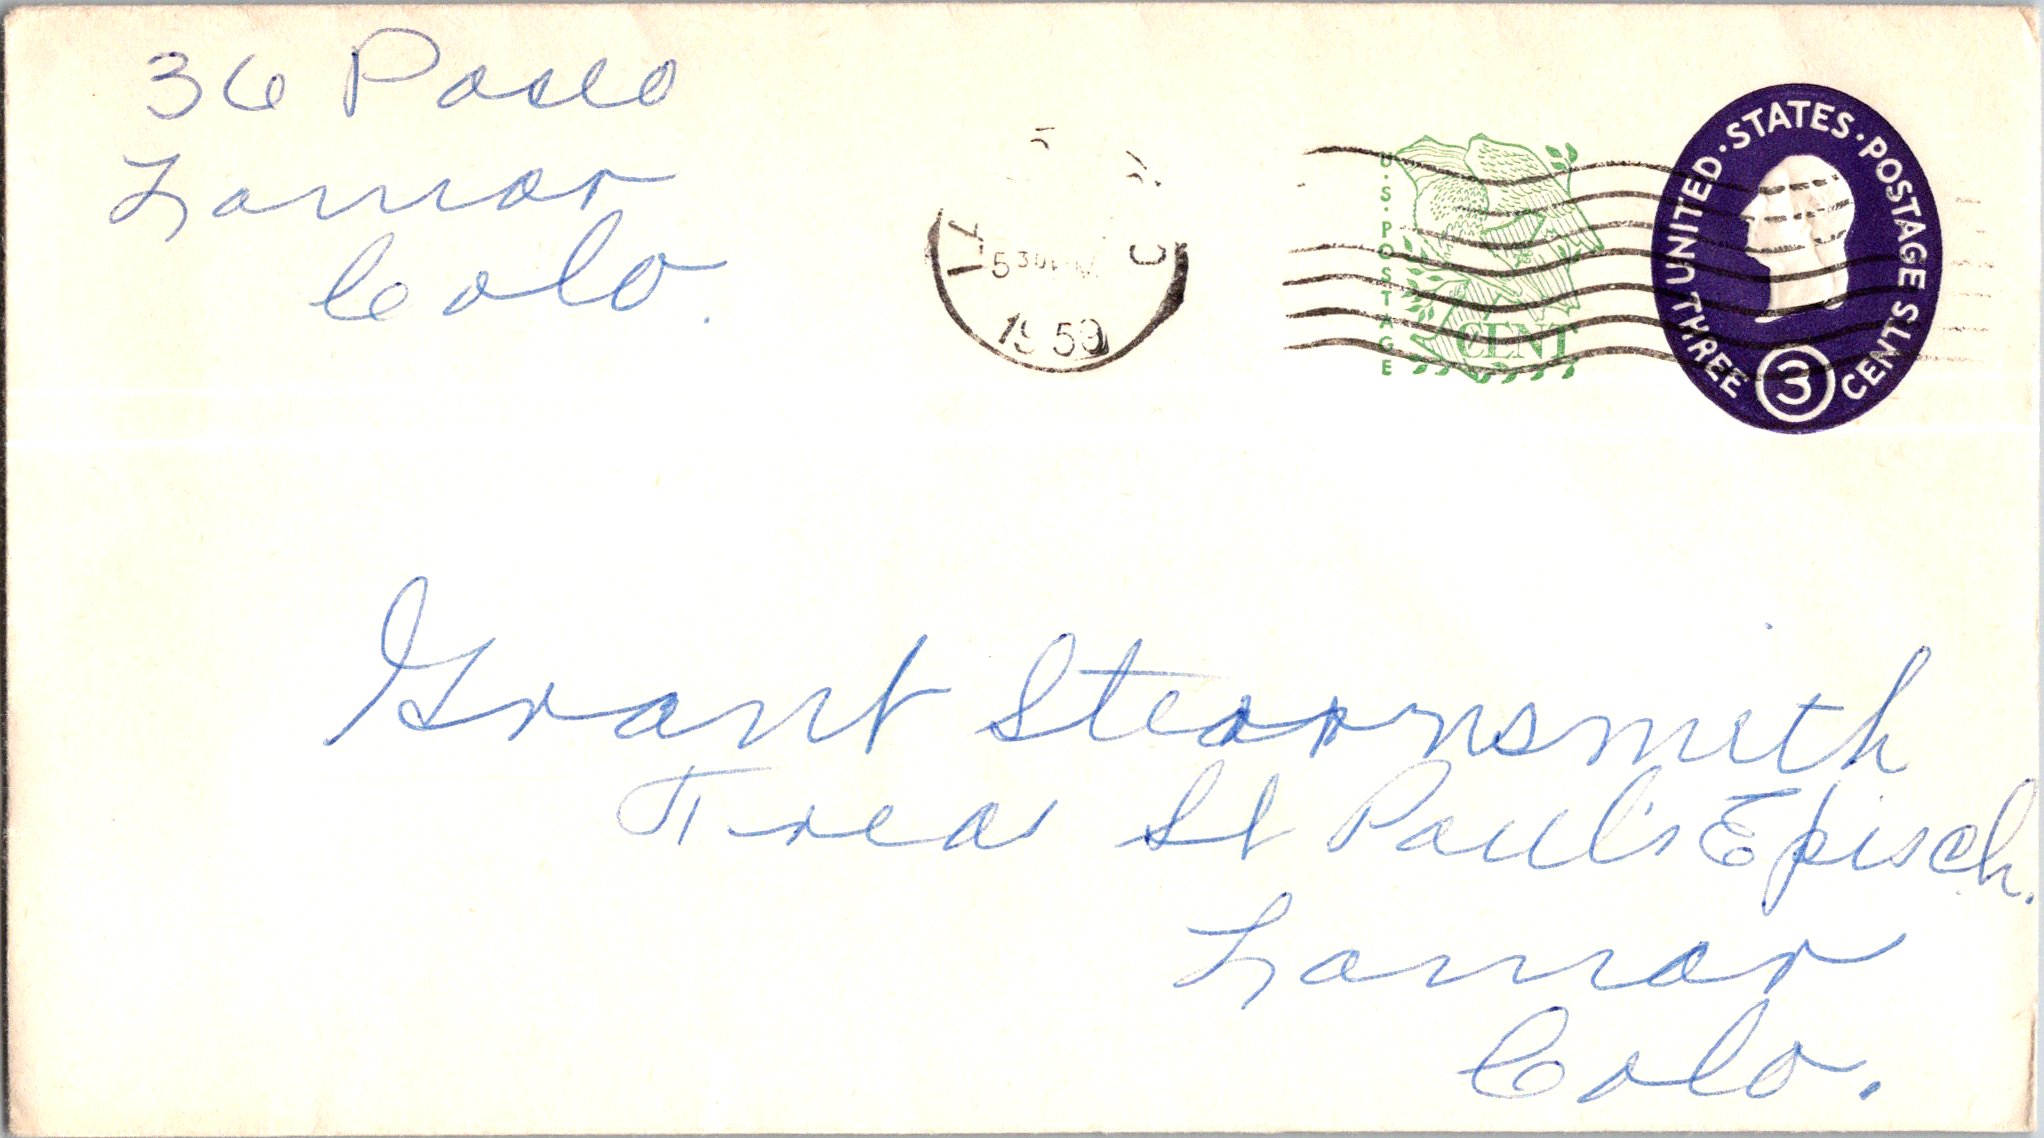 36 Paseo
Lamar
Colo.
5 30 PM
1959
U.S. POSTAGE
1 CENT
UNITED · STATES · POSTAGE
THREE 3 CENTS
Grant Stearnsmith
Treas St Paul's Episch.
Lamar
Colo.